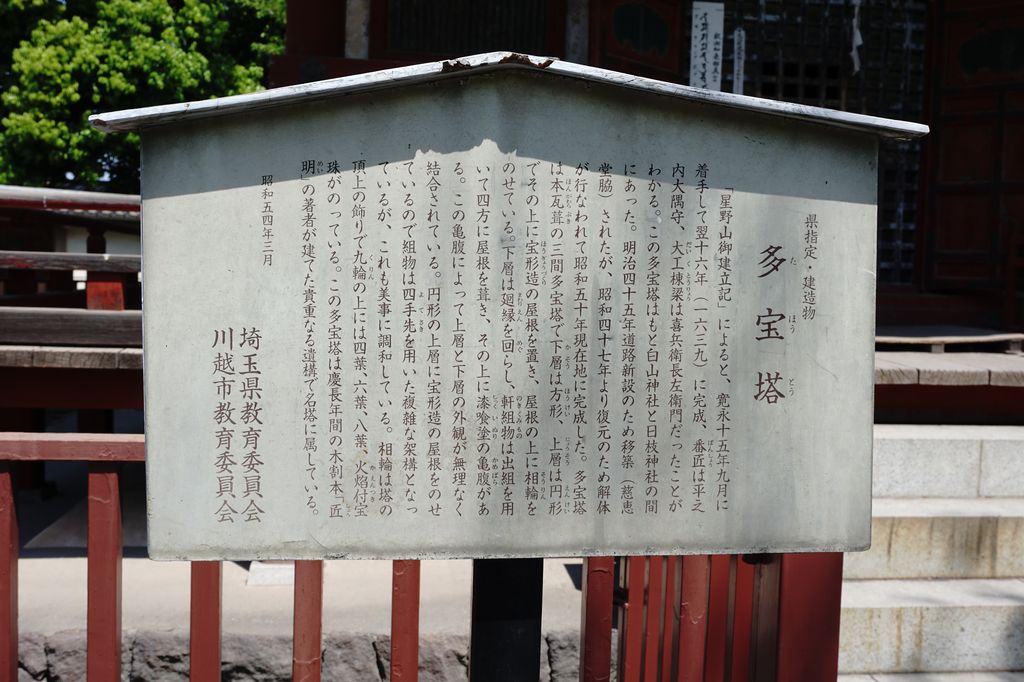 県指定・建造物
多宝塔
「星野山御建立記」によると、寛永十五年九月に
着手して翌十六年（一六三九）に完成、番匠は平之
内大隅守、大工棟梁は喜兵衛長左衛門だったことが
わかる。この多宝塔はもと白山神社と日枝神社の間
にあった。明治四十五年道路新設のため移築（慈恵
堂脇）されたが、昭和四十七年より復元のため解体
が行なわれて昭和五十年現在地に完成した。多宝塔
は本瓦葺の三間多宝塔で下層は方形、上層は円形
でその上に宝形造の屋根を置き、屋根の上に相輪を
のせている。下層は廻縁を回らし、軒組物は出組を用
いて四方に屋根を葺き、その上に漆喰塗の亀腹があ
る。この亀腹によって上層と下層の外観が無理なく
結合されている。円形の上層に宝形造の屋根をのせ
ているので組物は四手先を用いた複雑な架構となっ
ているが、これも美事に調和している。相輪は塔の
頂上の飾りで九輪の上には四葉、六葉、八葉、火焔付宝
珠がのっている。この多宝塔は慶長年間の木割本「匠
明」の著者が建てた貴重なる遺構で名塔に属している。
昭和五四年三月
埼玉県教育委員会
川越市教育委員会